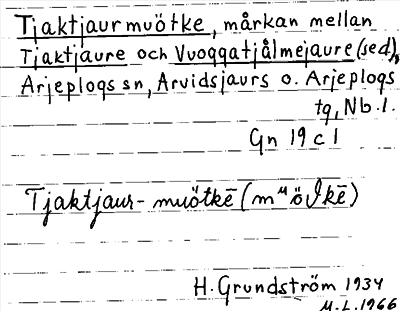 Tjaktjaurmuötke, mårkan mellan
Tjaktjaure och Vuoggatjålmejaure (sed),
Arjeplogs sn, Arvidsjaurs o. Arjeplogs
tg, Nb. l.
Gn 19 c 1
Tjaktjaur-muötkē (mᵘöϑkē)
H. Grundström 1934
M. L. 1966